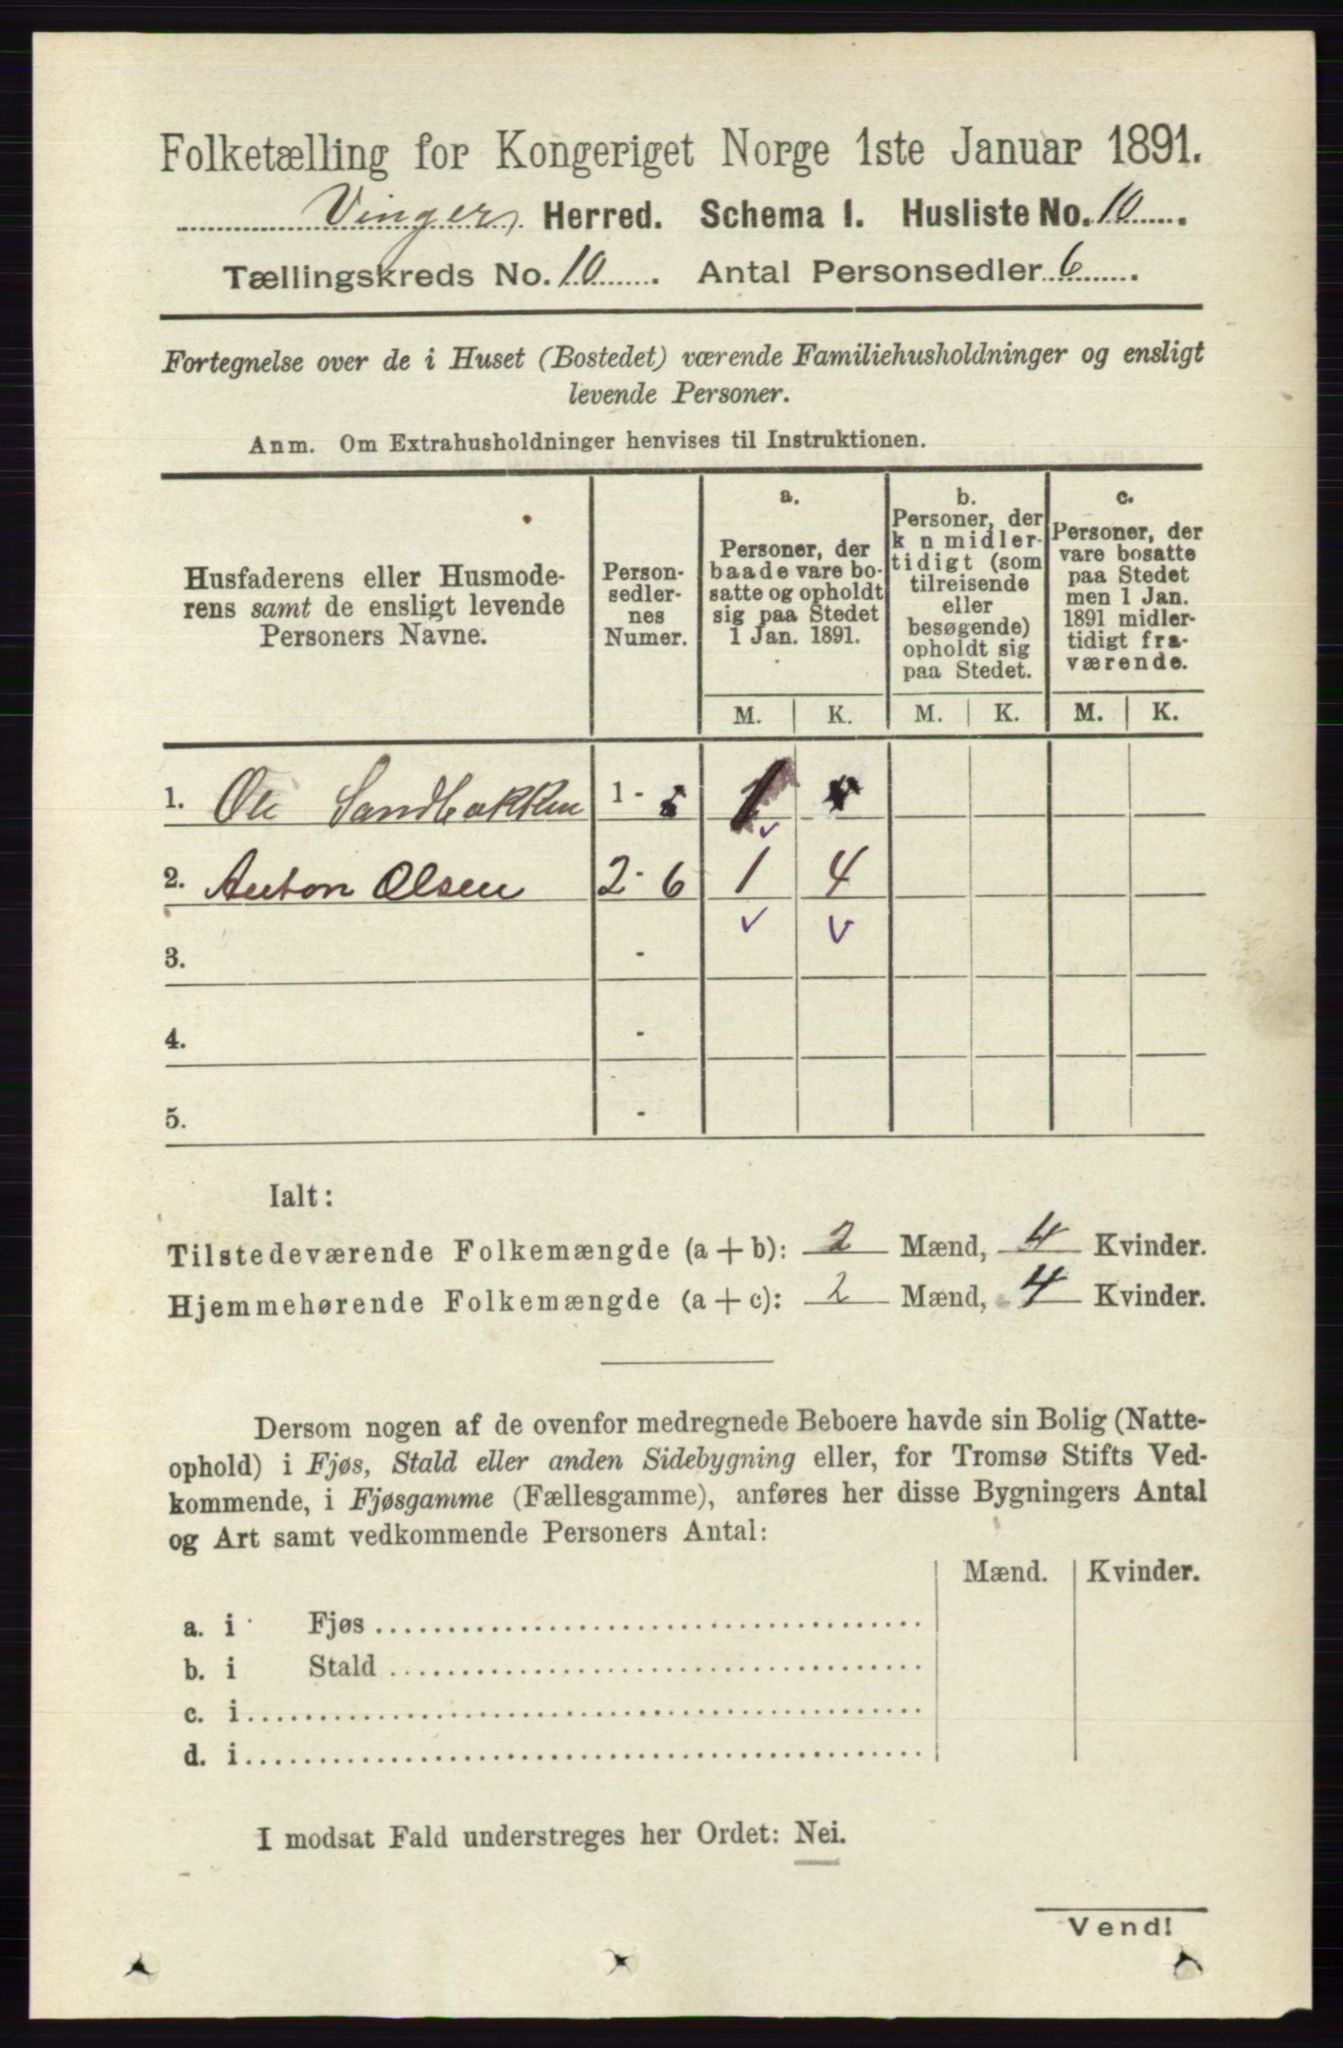 Folketælling for Kongeriget Norge 1ste Januar 1891.
Vinger Herred. Schema I. Husliste No. 10
Tællingskreds No. 10. Antal Personsedler 6.
Fortegnelse over de i Huset (Bostedet) værende Familiehusholdninger og ensligt
levende Personer.
Anm. Om Extrahusholdninger henvises til Instruktionen.
Husfaderens eller Husmode-
rens samt de ensligt levende
Personers Navne.
Person-
sedler-
nes
Numer.
a.
Personer, der
baade vare bo-
satte og opholdt
sig paa Stedet
1 Jan. 1891.
b.
Personer, der
k n midler-
tidigt (som
tilreisende
eller
besøgende)
opholdt sig
paa Stedet.
c.
Personer, der
vare bosatte
paa Stedet
men 1 Jan.
1891 midler-
tidigt fra-
værende.
M. K. M. K. M. K.
1. Ole Sandbakken 1 - 1
2. Anton Olsen 2 - 6 1 4
3. -
4. -
5. -
Ialt:
Tilstedeværende Folkemængde (a + b): 2 Mænd, 4 Kvinder.
Hjemmehørende Folkemængde (a + c): 2 Mænd, 4 Kvinder.
Dersom nogen af de ovenfor medregnede Beboere havde sin Bolig (Natte-
ophold) i Fjøs, Stald eller anden Sidebygning eller, for Tromsø Stifts Ved-
kommende, i Fjøsgamme (Fællesgamme), anføres her disse Bygningers Antal
og Art samt vedkommende Personers Antal:
Mænd. Kvinder.
a. i Fjøs
b. i Stald
c. i
d. i
I modsat Fald understreges her Ordet: Nei.
Vend!